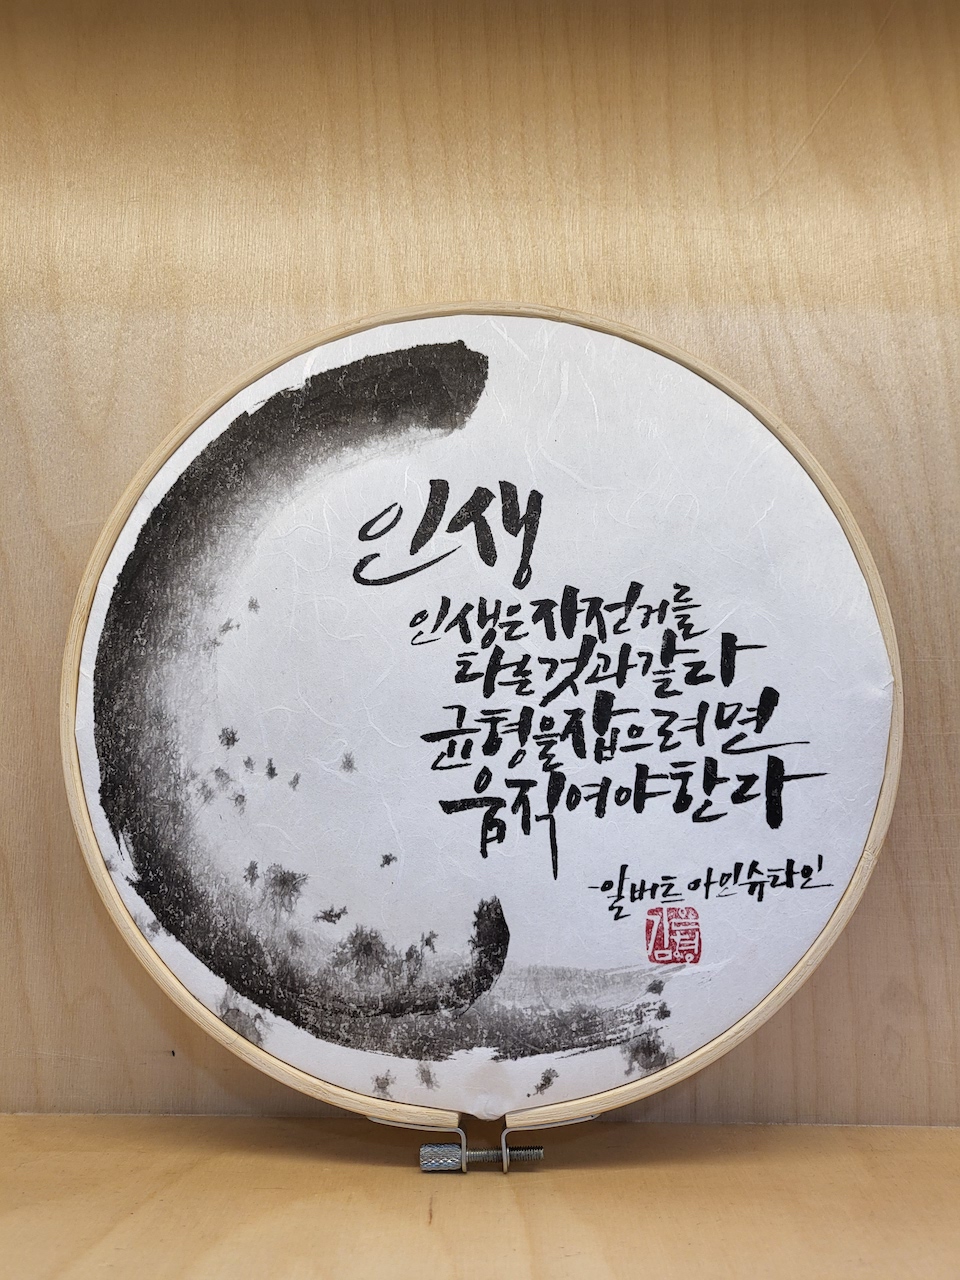 인생
인생은 자전거를
타는 것과 같다
균형을 잡으려면
움직여야 한다
-알버트 아인슈타인